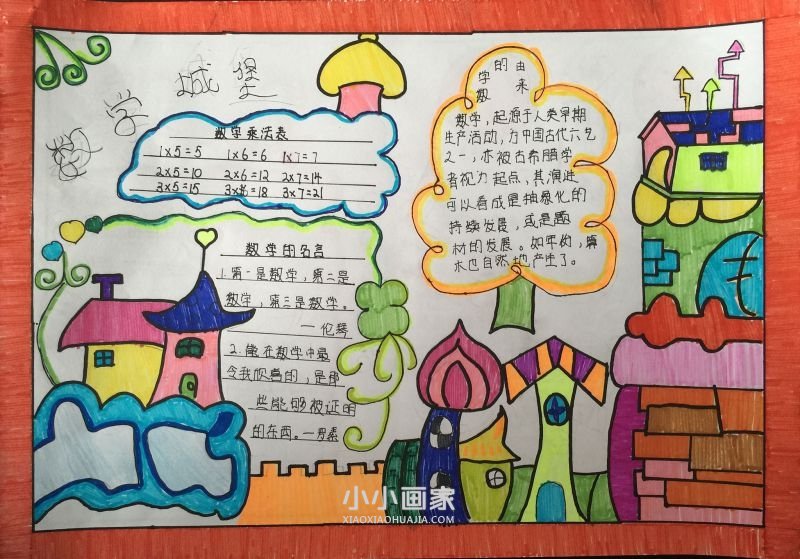 数学城堡
数学乘法表
1×5=5 1×6=6 1×7=7
2×5=10 2×6=12 2×7=14
3×5=15 3×6=18 3×7=21
数学的名言
1.第一是数学,第二是
数学,第三是数学。
—伦琴
2.能在数学中最
令我欣喜的,是那
些能够被证明
的东西。—罗素
数学的由来
数学,起源于人类早期
生产活动,为中国古代六艺
之一,亦被古希腊学
者视为起点,其演进
可以看成是抽象化的
持续发展,或是题
材的发展。如年的,算
术也自然地产生了。
小小画家
XIAOXIAOHUAJIA.COM